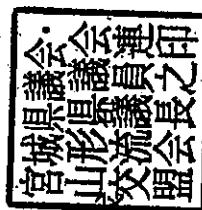 宮城県議会・
山形県議会
交流議員連
盟会長之印